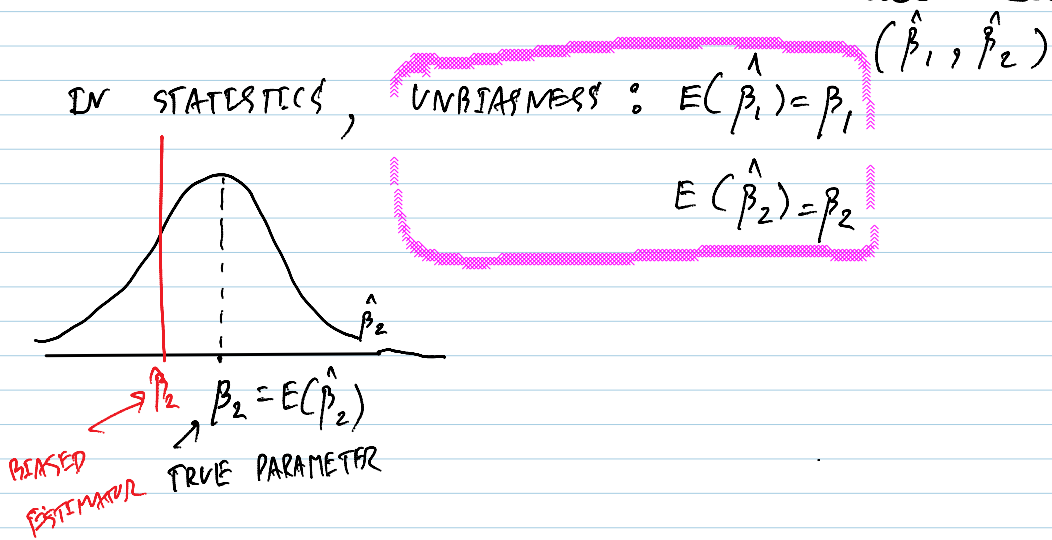 (β̂₁, β̂₂)
IN STATISTICS, UNBIASNESS : E(β̂₁) = β₁
E(β̂₂) = β₂
β̂₂
β̂₂
β₂ = E(β̂₂)
BIASED
ESTIMATOR
TRUE PARAMETER